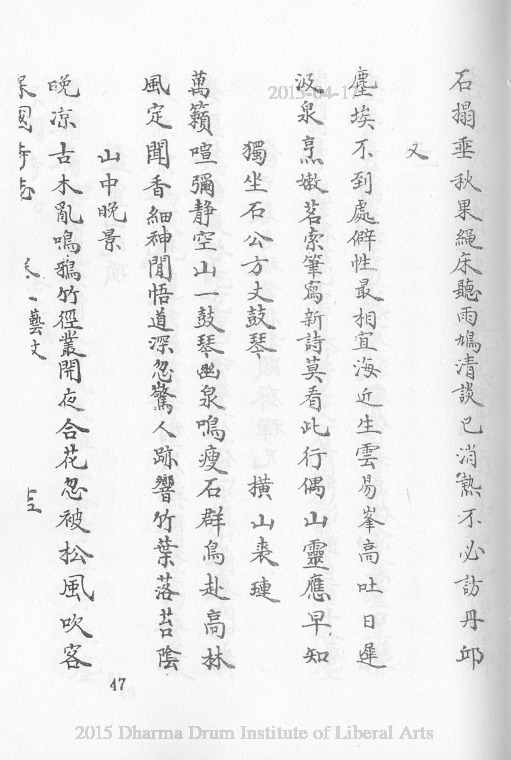 石搨垂秋果繩床聽雨鳩清談已消熱不必訪丹邱
又
塵埃不到處僻性最相宜海近生雲易峯高吐日遲
汲泉烹嫩茗索筆寫新詩莫看此行偶山靈應早知
獨坐石公方丈鼓琴 橫山裘璉
萬籟喧彌静空山一鼓琴幽泉鳴瘦石群鳥赴高林
風定聞香細神閒悟道深忽驚人跡響竹葉落苔陰
山中晚景
晚凉古木亂鳴鵶竹徑叢開夜合花忽被松風吹客
保國寺志 卷一藝文
47
2015-04-17
2015 Dharma Drum Institute of Liberal Arts